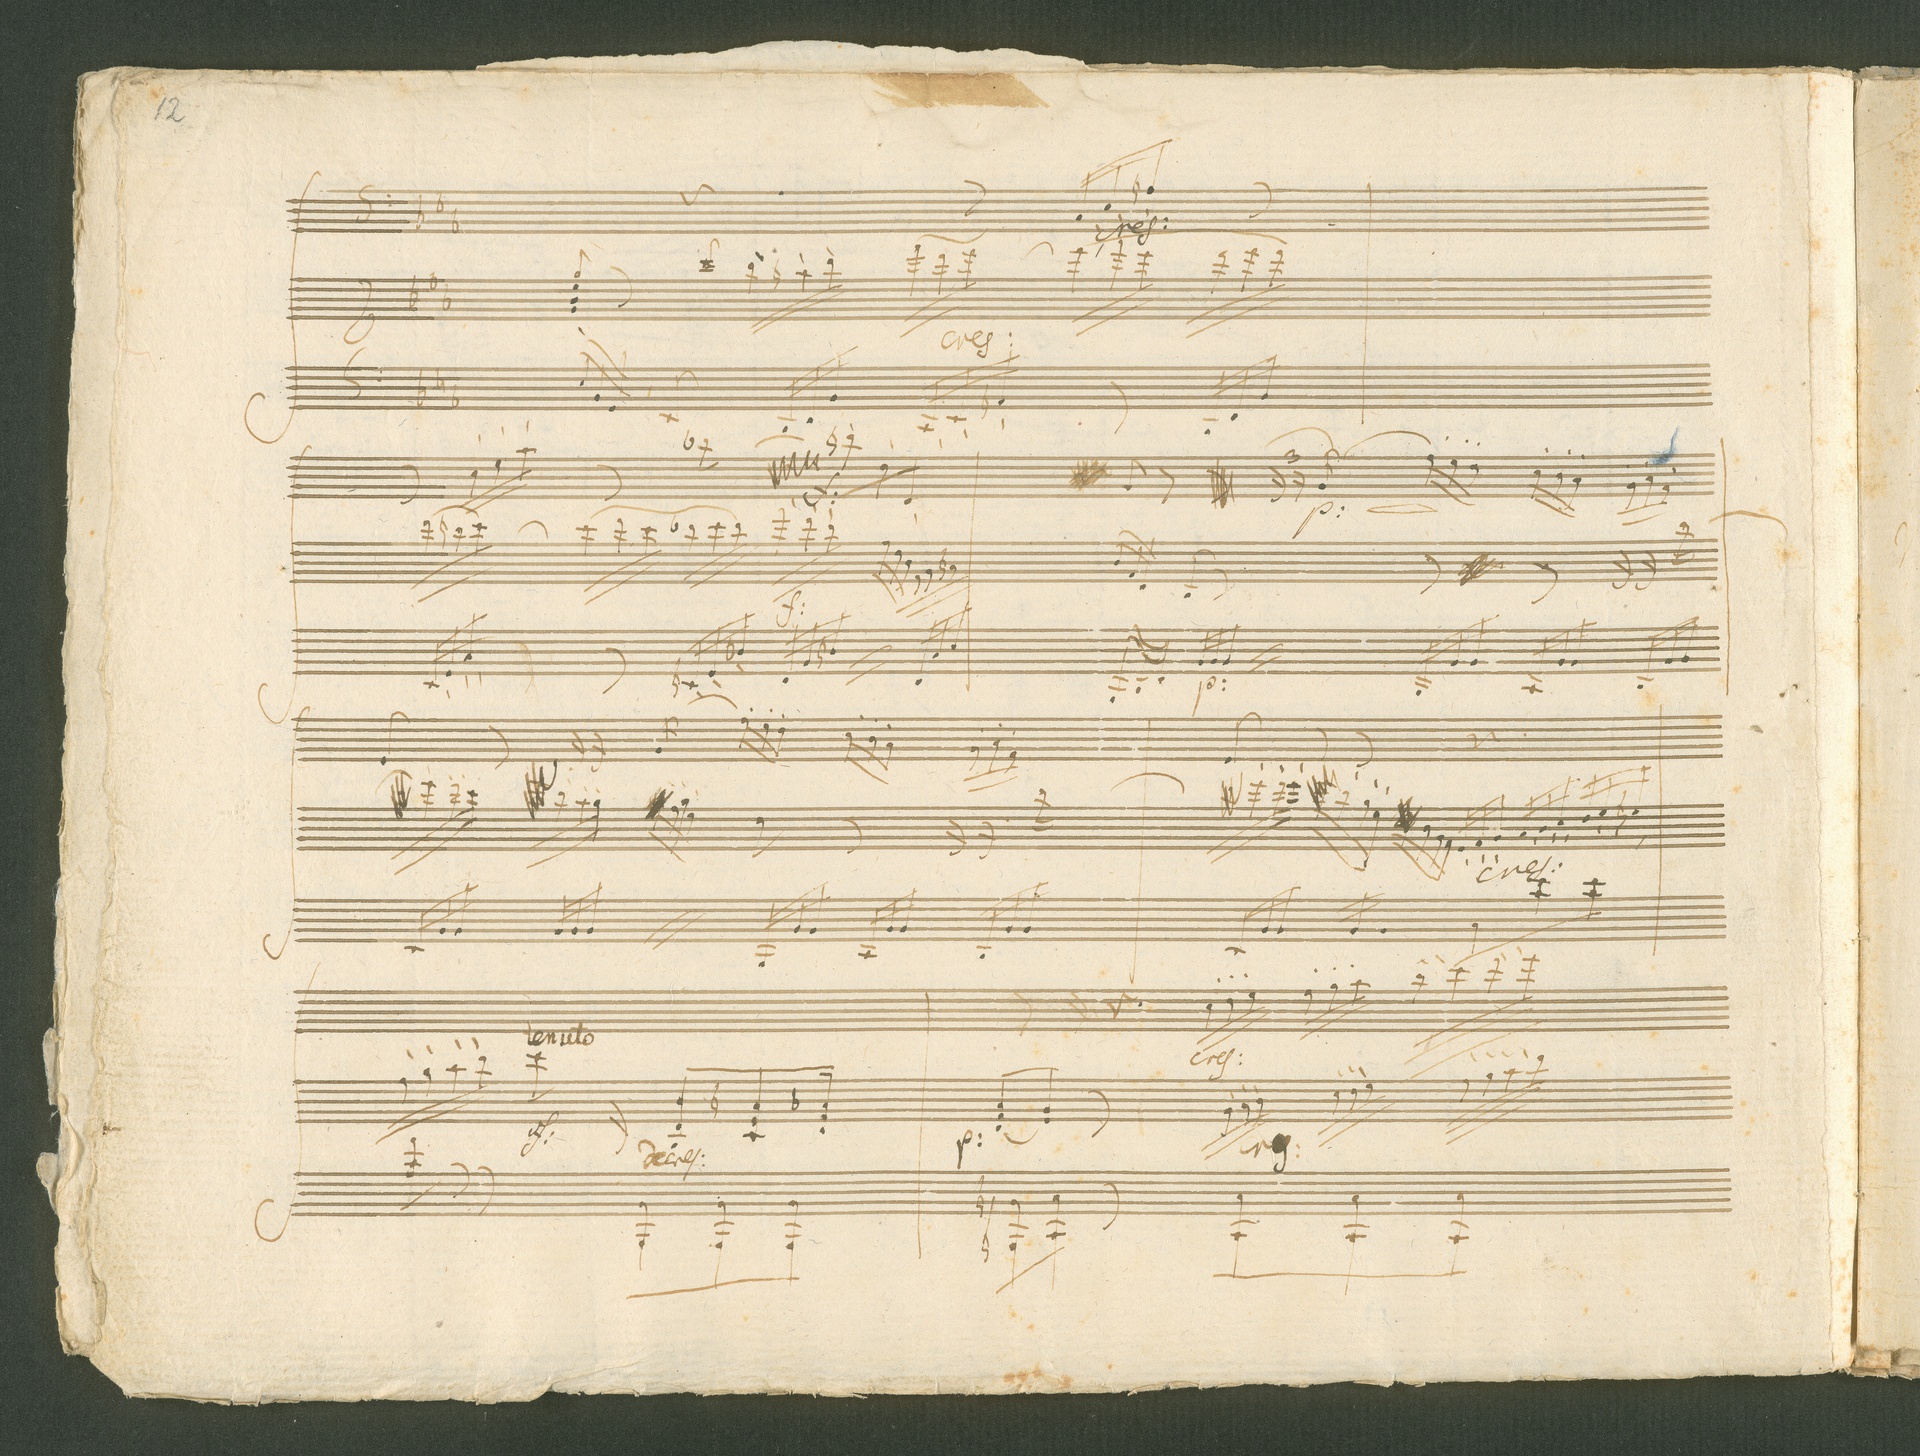 12
cres:
cres:
3
p:
f:
p:
cres:
tenuto
cres:
sf:
decres:
p: